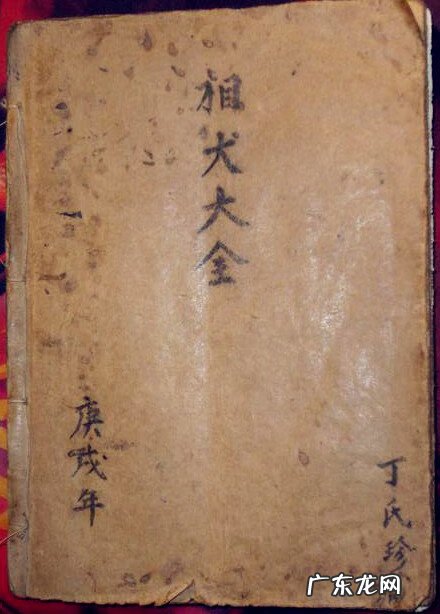 相犬大全
庚戌年
丁氏珍
广东龙网